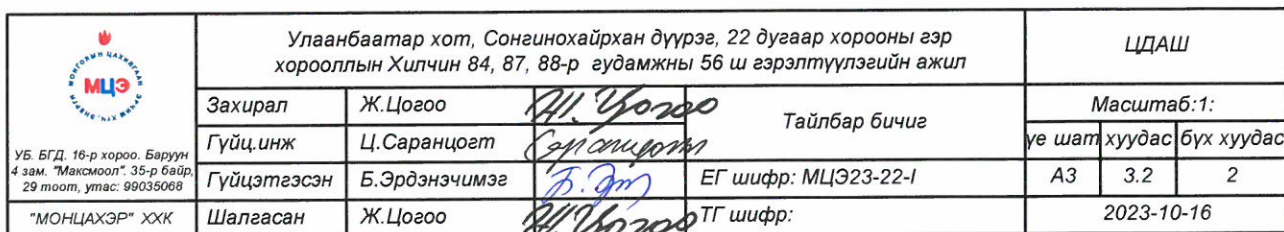 МОНГОЛЫН ЦАХИЛГААН
МЦЭ
ЭРЧИМ ХҮЧ, ЭНЕРГИ
УБ. БГД. 16-р хороо. Баруун
4 зам. "Максмоол". 35-р байр,
29 тоот, утас: 99035068
"МОНЦАХЭР" ХХК
Улаанбаатар хот, Сонгинохайрхан дүүрэг, 22 дугаар хорооны гэр
хорооллын Хилчин 84, 87, 88-р гудамжны 56 ш гэрэлтүүлэгийн ажил
ЦДАШ
Захирал Ж.Цогоо Ж. Цогоо
Гүйц.инж Ц.Саранцогт Саранцогт
Гүйцэтгэсэн Б.Эрдэнэчимэг Б. Эрд
Шалгасан Ж.Цогоо Ж. Цогоо
Тайлбар бичиг
ЕГ шифр: МЦЭ23-22-I
ТГ шифр:
Масштаб:1:
үе шат хуудас бүх хуудас
А3 3.2 2
2023-10-16